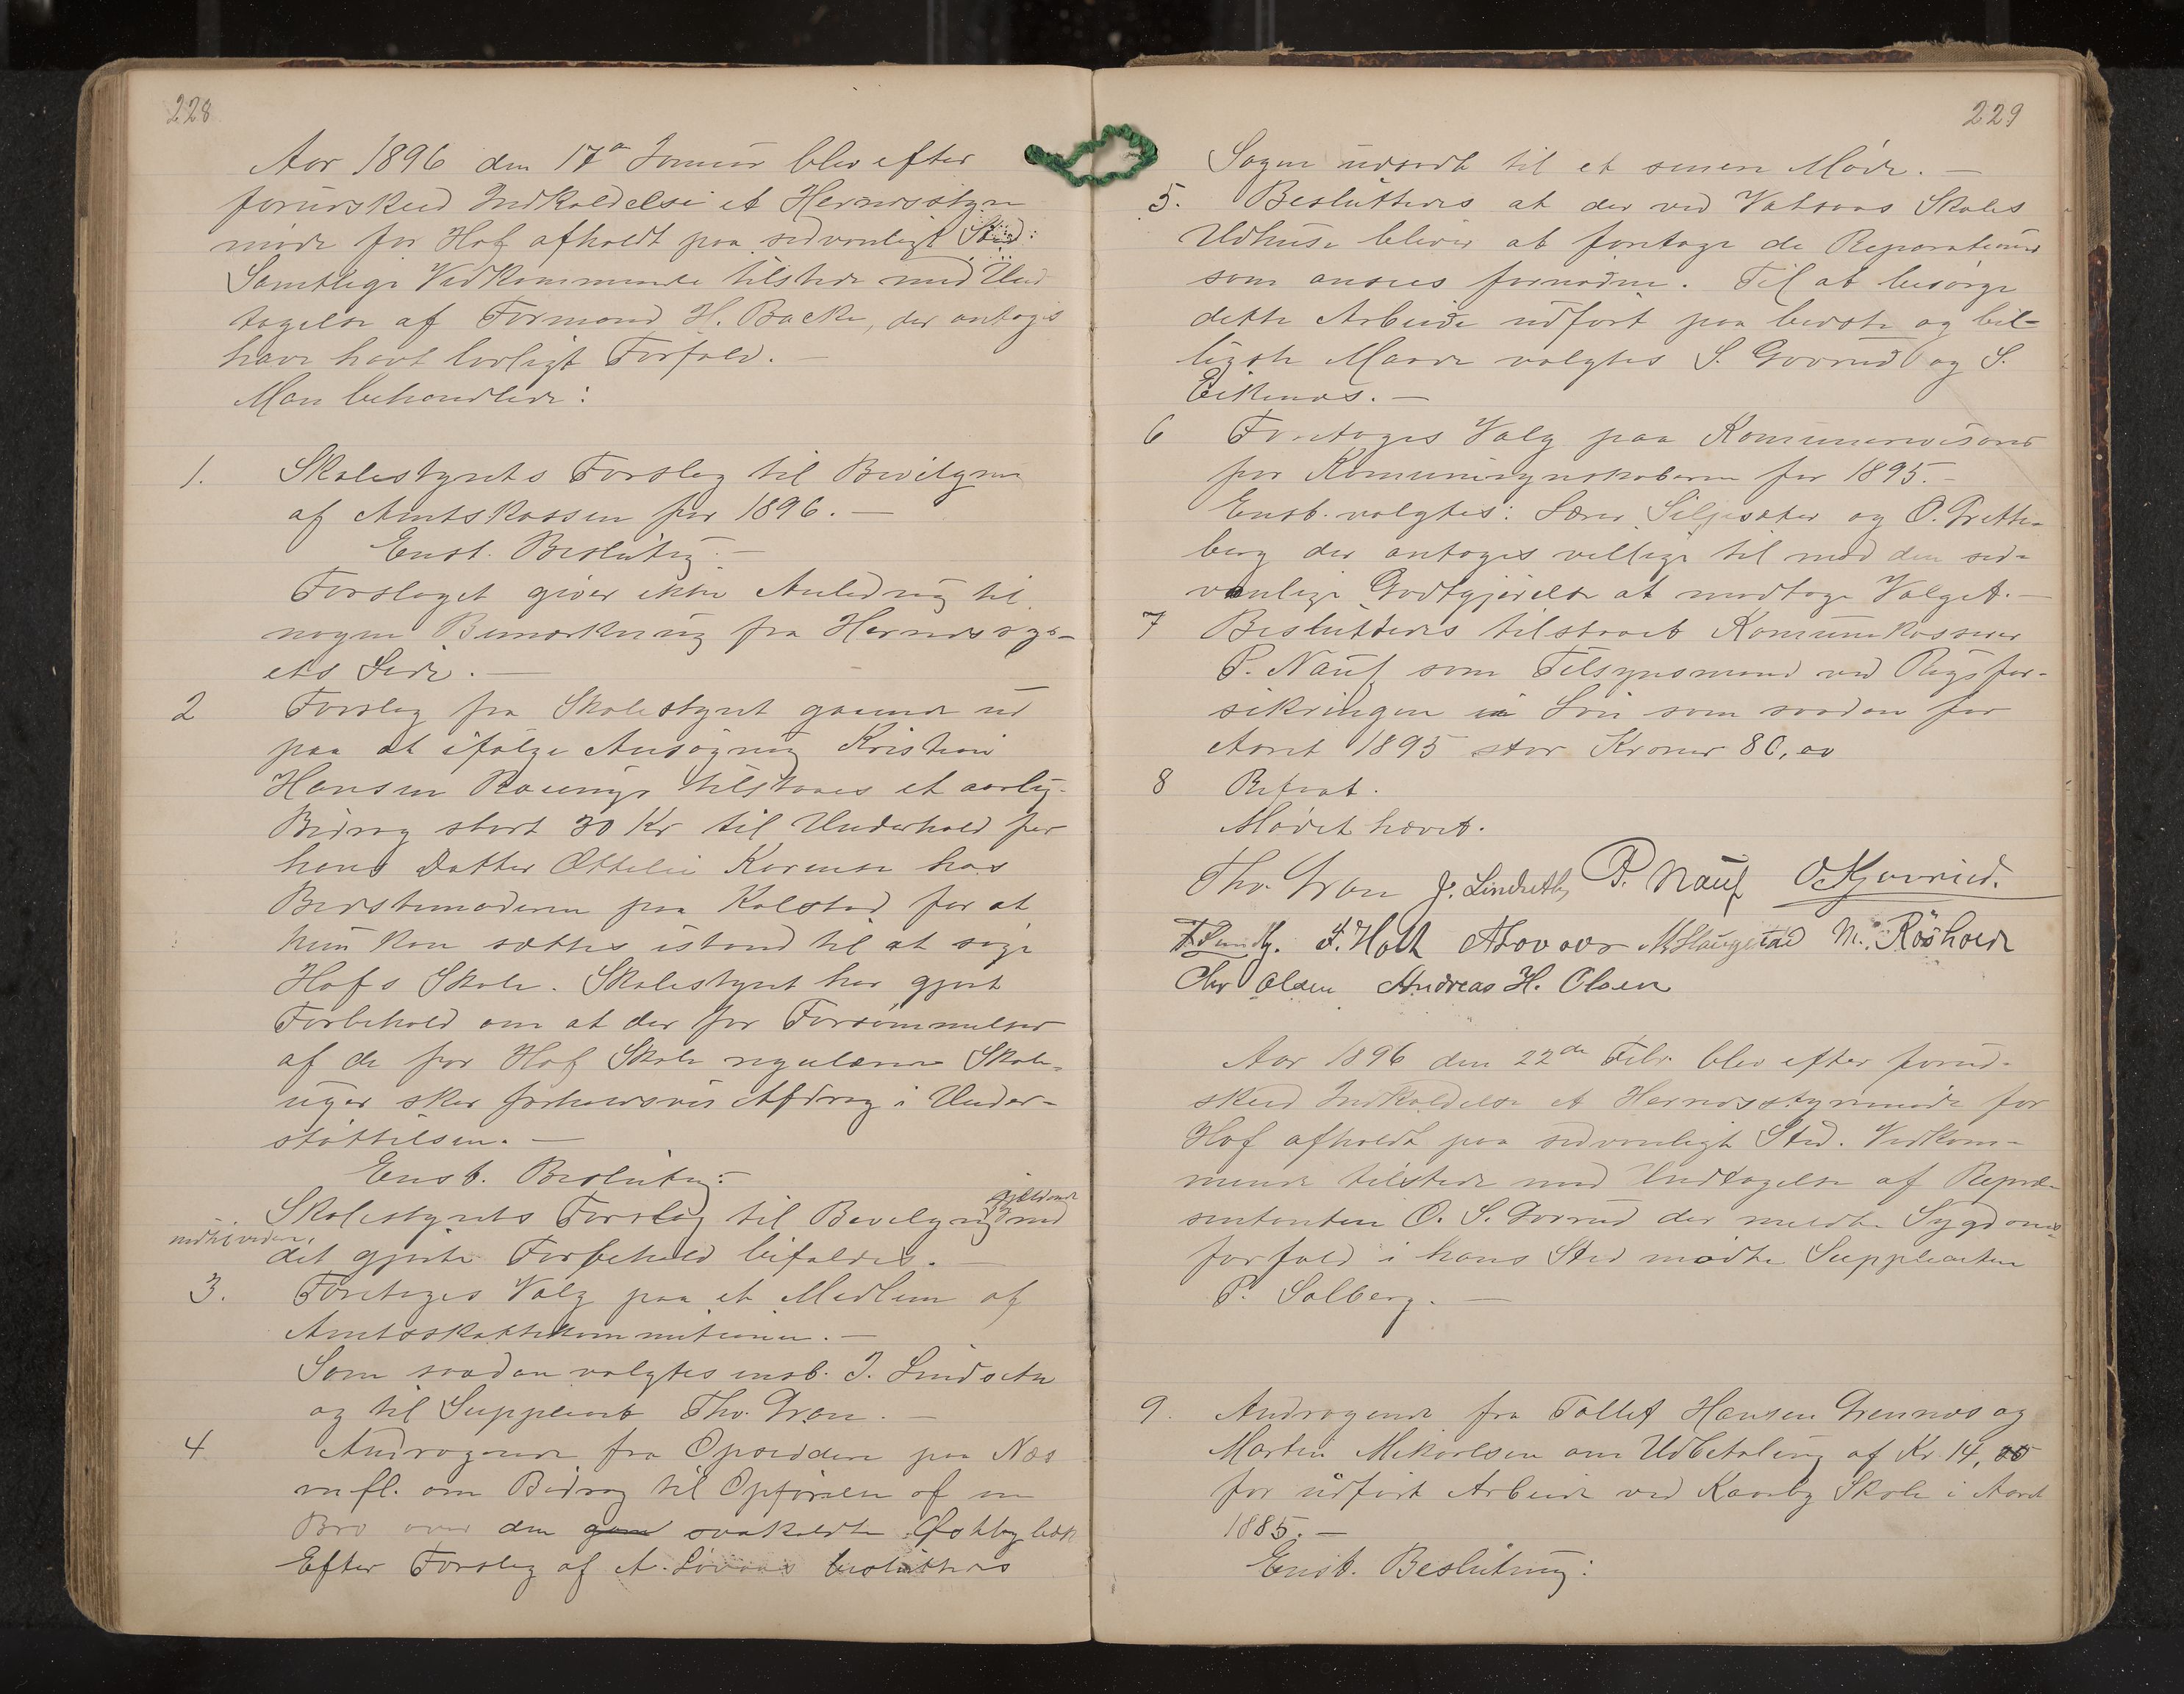 228
Aar 1896 den 17de Januar blev efter
forudskeed Indkaldelse et Herredsstyre
møde for Hof afholdt paa sedvanligt Sted:
Samtlige Vedkommende tilstede med Und
tagelse af Formand H. Backe, der antages
have havt lovligt Forfald. —
Man behandlede:
1. Skolestyrets Forslag til Bevilgning
af Amtskassen for 1896. —
Enst. Beslutng. —
Forslaget giver ikke Anledning til
nogen Bemærkning fra Herreds
ets Side. —
2 Forslag fra Skolestyret gaaende ud
paa at ifølge Ansøgning Kristian
Hansen tilstaaes et aarlig
Bidrag stort 30 Kr til Underhold for
hans Datter Ottelie Karense hos
Bedstemoderen paa Kolstad for at
hun kan sættes istand til at søge
Hofs Skole. Skolestyret har gjort
Forbehold om at der for Forsømmelser
af de for Hof Skole regulære Skole-
uger sker forholdsvis Afdrag i Under-
støttelsen. —
Enst. Beslutng:
gjeldende
Skolestyrets Forslag til Bevilgning med
indtil videre,
det gjorte Forbehold bifaldes. —
3. Foretages Valg paa et Medlem af
Amtsskattekommitionen. —
Som saadan valgtes enst. J. Lindseth
og til Suppleant Tho. Gran. —
4 Andragende fra Opsidderne paa Næs
m fl. om Bidrag til Opførelse af en
Bro over den saakaldte Østbybæk
Efter Forslag af A. Lovaas besluttedes
229
Sagen udsadt til et senere Møde. —
5. Besluttedes at der ved Vatnaas Skoles
Udhuse bliver at foretage de Reparationer
som ansees fornødne. Til at besørge
dette Arbeide udført paa bedste og bil-
ligste Maade valgtes S. Govrud og S.
Eikenæs. —
6 Foretages Valg paa Kommunerevisorer
for Komuneregnskaberne for 1895. —
Enst. valgtes: Lærer Siljesæter og O. Grette-
berg der antages villige til mod den sed-
vanlige Godtgjørelse at modtage Valget. —
7 Besluttedes tilstaaet Komunekasserer
P. Nauf som Tilsynsmand ved Rigsfor-
sikringen en Løn som saadan for
Aaret 1895 stor Kroner 80,00
8 Referat.
Mødet hævet.
Tho. Gran J. Lindseth P. Nauf O Govrud.
F. Holt A Lovaas M Haugestad M. Röshold
Chr Olsen Andreas H. Olsen
Aar 1896 den 22de Febr. blev efter forud-
skeed Indkaldelse et Herredsstyremøde for
Hof afholdt paa sedvanligt Sted. Vedkom-
mende tilstede med Undtagelse af Repræ-
sentanten O. S. Govrud der meldte Sygdoms-
forfald i hans Sted mødte Suppleanten
P. Solberg. —
9. Andragende fra Tollef Hansen Grennes og
Martin Mikaelsen om Udbetaling af Kr. 14,
for udført Arbeide ved Kaasby Skole i Aaret
1885. —
Enst. Beslutning: